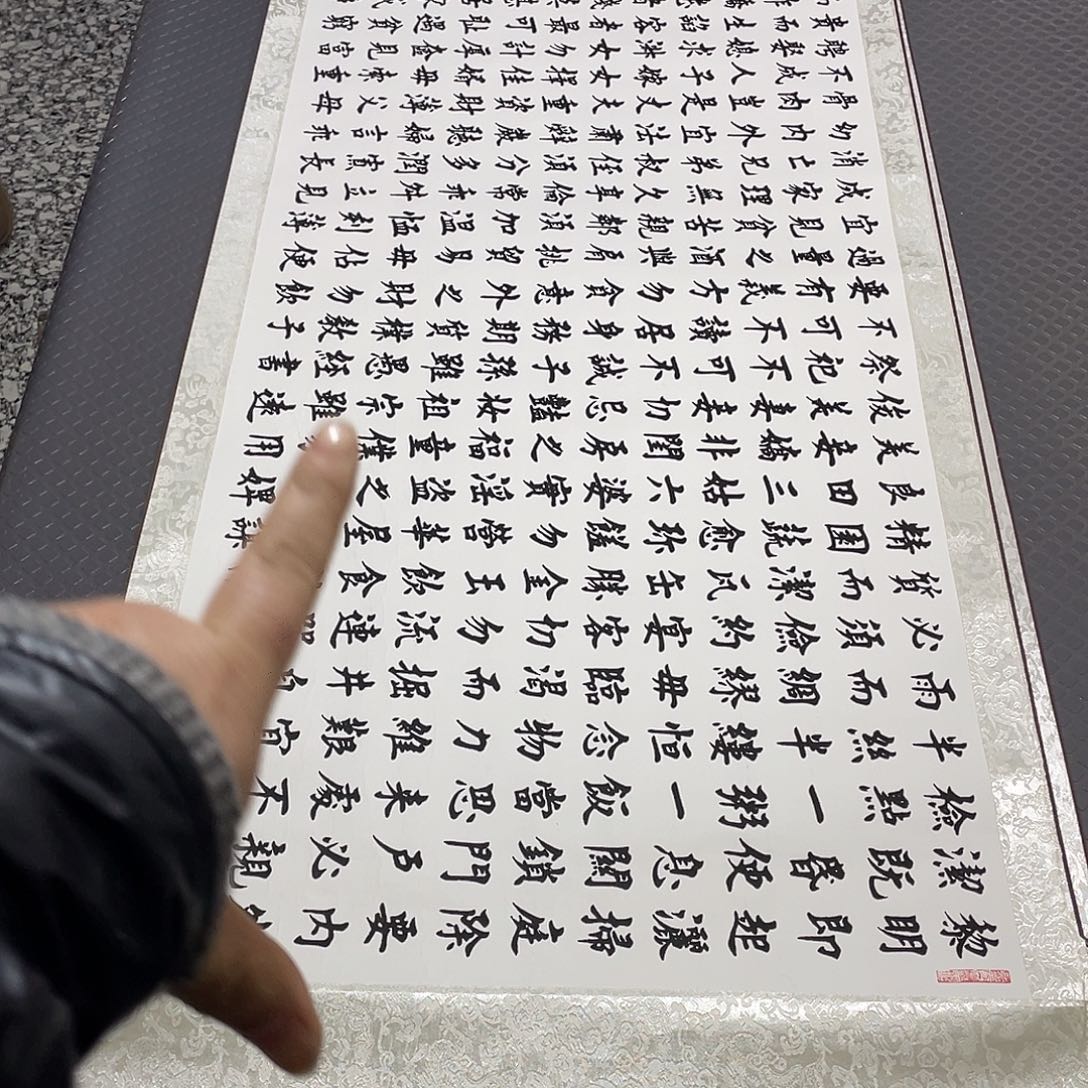 黎明即起灑掃庭除要內
潔既昏便息關鎖門戶必親
檢點一粥一飯當思來處不
半絲半縷恒念物力維艱宜
雨而綢繆毋臨渴而掘井自
必須儉約宴客切勿流連
質而潔瓦缶勝金玉飲食
精園蔬愈珍饈勿營華屋謀
良田三姑六婆實淫盜之婢
美妾嬌非閨房之福童僕用
俊美妻妾切忌艷妝祖宗雖遠
祭祀不可不誠子孫雖愚經書
不可不讀居身務期貨樸教子
要有義方勿貪意外之財勿飲
過量之酒與肩挑貿易毋佔便
宜見貧苦親鄰須加溫恤刻薄
成家理無久享倫常乖舛立見
消亡兄弟叔侄須分多潤寡長
幼內外宜法肅辭嚴聽婦言乖
骨肉豈是丈夫重資財薄父母
不成人子嫁女擇佳婿毋索重
聘娶媳求淑女勿計厚奩見富
貴而生諂容者最可恥遇貧窮